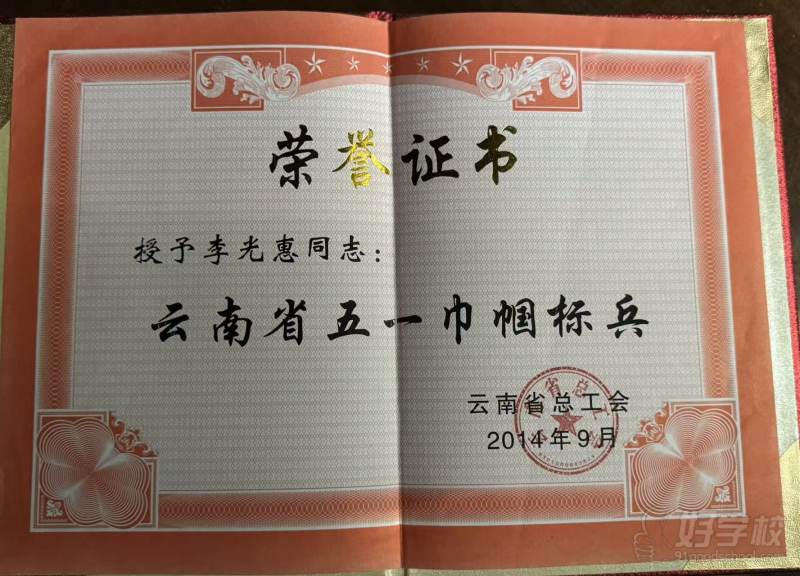 荣誉证书
授予李光惠同志：
云南省五一巾帼标兵
云南省总工会
2014年9月
好学校
91goodschool.com